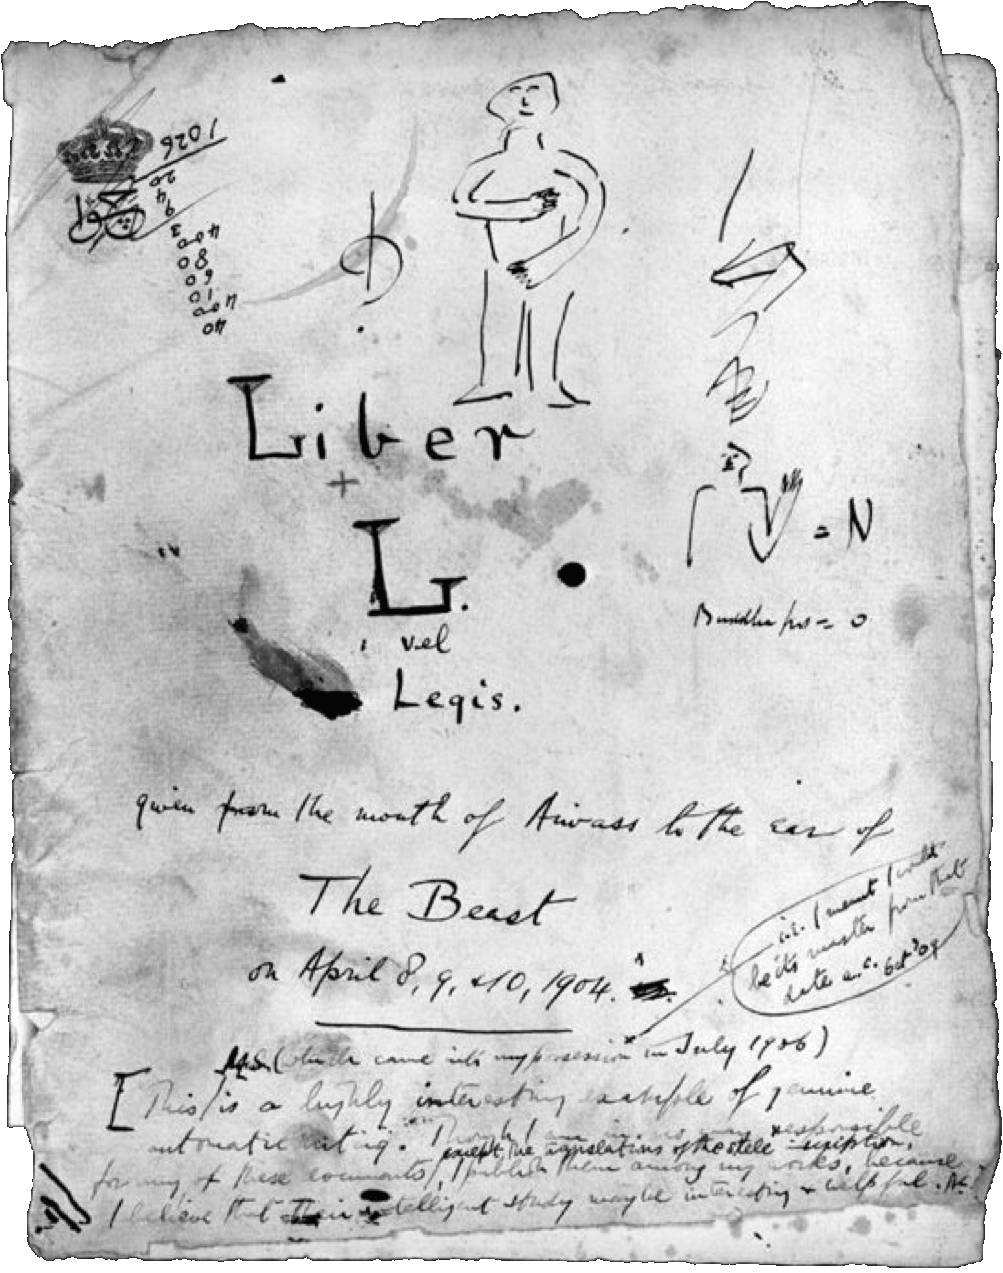 1026
20
4
9
3
400
80
60
10
400
40
Liber
L.
vel
Legis.
= N
= 0
given from the mouth of Aiwass to the ear of
The Beast
on April 8, 9, & 10, 1904.
i.e. I meant I would
be its master from that
date Oct '09
MS (which came into my possession in July 1906)
[This is a highly interesting example of genuine
automatic writing. Though I am in no way responsible
for any of these documents, except the translations of the stele inscription, I publish them among my works, because
I believe that their intelligent study may be interesting & helpful.